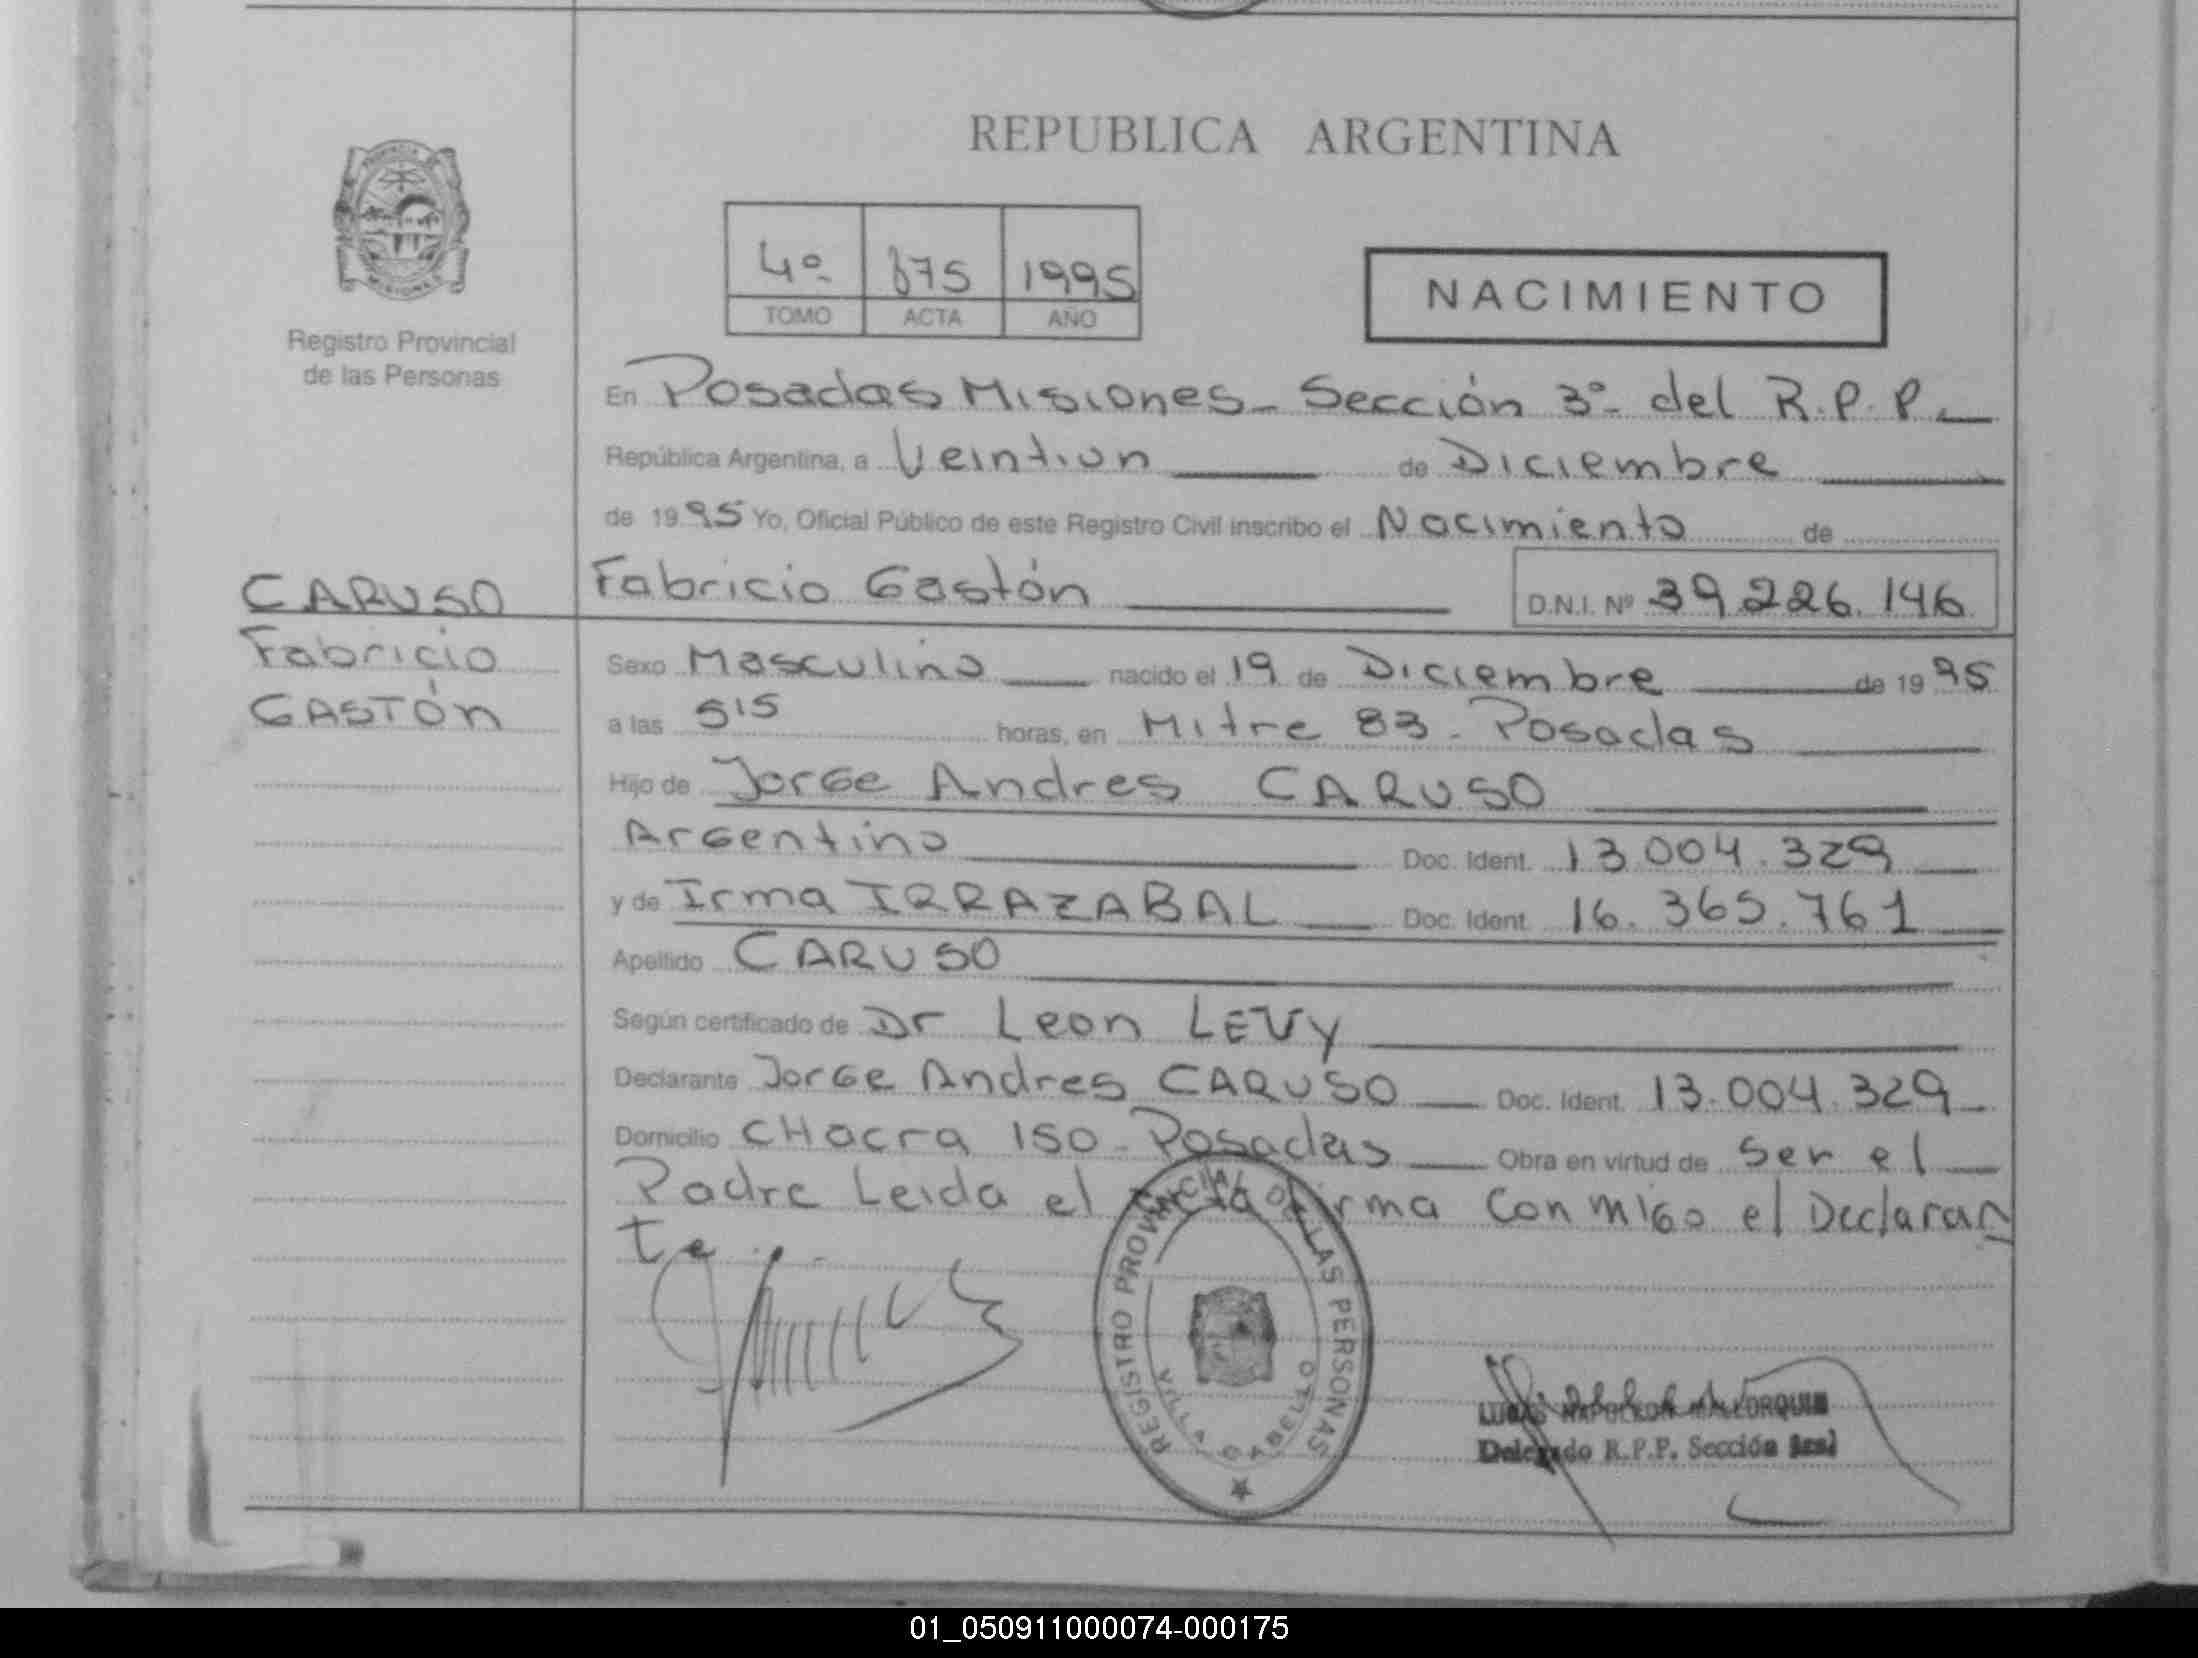 REPUBLICA ARGENTINA
PROVINCIA DE
MISIONES
Registro Provincial
de las Personas
4º 875 1995
TOMO ACTA AÑO
NACIMIENTO
En Posadas Misiones - Sección 3º del R.P.P.
República Argentina, a Veintiun de Diciembre
de 1995 Yo, Oficial Público de este Registro Civil inscribo el Nacimiento de
Fabricio Gastón D.N.I. Nº 39.226.146
CARUSO
Fabricio
GASTÓN
Sexo Masculino nacido el 19 de Diciembre de 1995
a las 515 horas, en Mitre 83 - Posadas
Hijo de Jorge Andres CARUSO
Argentino Doc. Ident. 13.004.329
y de Irma IRRAZABAL Doc. Ident. 16.365.761
Apellido CARUSO
Según certificado de Dr Leon LEVY
Declarante Jorge Andres CARUSO Doc. Ident. 13.004.329
Domicilio CHacra 150 - Posadas Obra en virtud de Ser el
Padre Leida el Acta firma Conmigo el Declaran
te
REGISTRO PROVINCIAL DE LAS PERSONAS
VILLA CABELLO
LUCAS NAPOLEON MALLORQUIN
Delegado R.P.P. Sección 3ra.
01_050911000074-000175